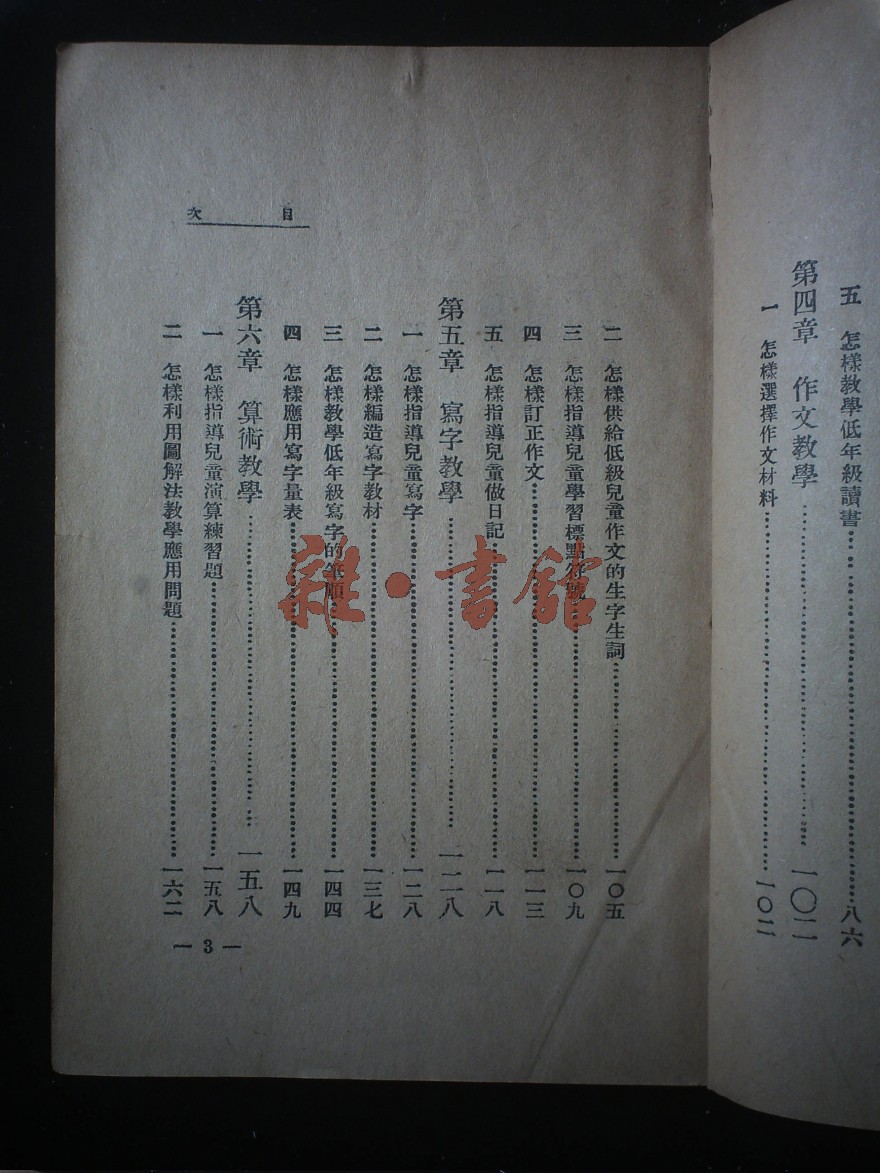 五 怎樣教學低年級讀書……八六
第四章 作文教學……一〇二
一 怎樣選擇作文材料……一〇二
目次
二 怎樣供給低級兒童作文的生字生詞……一〇五
三 怎樣指導兒童學習標點符號……一〇九
四 怎樣訂正作文……一一三
五 怎樣指導兒童做日記……一一八
第五章 寫字教學……一二八
一 怎樣指導兒童寫字……一二八
二 怎樣編造寫字教材……一三七
三 怎樣教學低年級寫字的筆順……一四四
四 怎樣應用寫字量表……一四九
第六章 算術教學……一五八
一 怎樣指導兒童演算練習題……一五八
二 怎樣利用圖解法教學應用問題……一六二
— 3 —
雜·書館